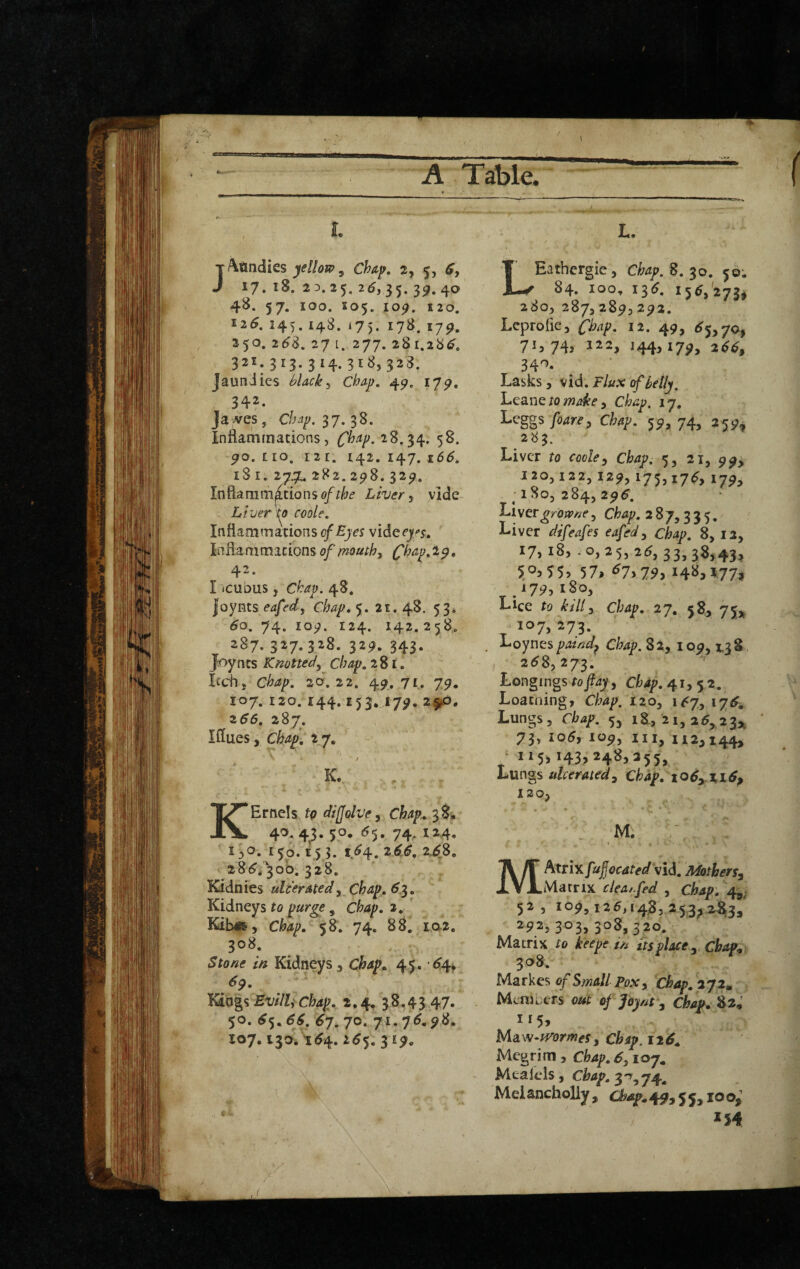 A Table.
I.
JAundies yellow, Chap. 2, 5, 6,
17. 18. 20. 25. 26, 35. 39. 40
48. 57. 100. 105. 109. 120.
126. 145. 148. 175. 178. 179.
250. 268. 271. 277. 281. 286.
321. 313. 314. 318, 328.
Jaundies black, Chap. 49. 179.
342.
Jawes, Chap. 37. 38.
Inflammations, Chap. 28. 34. 58.
90. 110. 121. 142. 147. 166.
181. 277. 282. 298. 329.
Inflammations of the Liver, vide
Liver to coole.
Inflammations of Eyes vide eyes.
Inflammations of mouth, Chap. 29.
42.
Incubus, Chap. 48.
Joynts eased, Chap. 5. 21. 48. 53.
60. 74. 109. 124. 142. 258.
287. 327. 328. 329. 343.
Joynts Knotted, Chap. 281.
Itch, Chap. 20. 22. 49. 71. 79.
107. 120. 144. 153. 179. 250.
266. 287.
Issues, Chap. 27.
K.
KErnels to dissolve, Chap. 38.
40. 43. 50. 65. 74. 124.
130. 150. 153. 164. 266. 268.
286. 300. 328.
Kidnies ulcerated, Chap. 63.
Kidneys to purge, Chap. 2.
Kibes, Chap. 58. 74. 88. 102.
308.
Stone in Kidneys, Chap. 45. 64.
69.
Kings Evill, Chap. 2. 4. 38. 43 47.
50. 65. 66. 67. 70. 71. 76. 98.
107. 130. 164. 265. 319.
L.
LEathergie, Chap. 8. 30. 50.
84. 100. 136. 156, 273,
280, 287, 289, 292.
Leprosie, Chap. 12. 49, 65, 70,
71, 74, 122, 144, 179, 266,
340.
Lasks, vid. Flux of belly.
Leane to make, Chap. 17.
Leggs soare, Chap. 59, 74, 259,
283.
Liver to coole, Chap. 5, 21, 99,
120, 122, 129, 175, 176, 179,
180, 284, 296.
Livergrowne, Chap. 287, 335.
Liver diseases eased, Chap. 8, 12,
17, 18, 20, 25, 26, 33, 38, 43,
50, 55, 57, 67, 79, 148, 177,
179, 180,
Lice to kill, Chap. 27. 58, 75,
107, 273.
Loynes paind, Chap. 82, 109, 138
268, 273.
Longings to stay, Chap. 41, 52.
Loathing, Chap. 120, 167, 176.
Lungs, Chap. 5, 18, 21, 26, 23,
73, 106, 109, 111, 112, 144,
115, 143, 248, 255,
Lungs ulcerated, Chap. 106, 116,
120,
M.
MAtrix suffocated vid. Mothers,
Matrix cleansed, Chap. 4,
52, 109, 126, 148, 253, 283,
292, 303, 308, 320.
Matrix to keepe in its place, Chap,
308.
Markes of Small Pox, Chap. 272.
Members out of Joynt, Chap. 82,
115,
Maw-wormes, Chap. 126.
Megrim, Chap. 6, 107.
Measels, Chap. 37, 74.
Melancholly, Chap. 49, 55, 100,
154